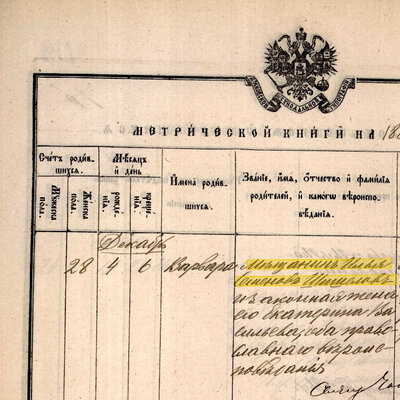 МЕТРИЧЕСКОЙ КНИГИ НА 18
Счетъ родив-
шихся.
Мужеска
пола.
Женска
пола.
Мѣсяцъ
и день
рожде-
нія.
креще-
нія.
Имена родив-
шихся.
Званіе, имя, отчество и фамилія
родителей, и какого вѣроиспо-
вѣданія.
Декабрь
28 4 6 Варвара
Мѣщанинъ Илья
и законная жена
его Екатерина Ва
сильева, оба право
славнаго вѣроис
повѣданія